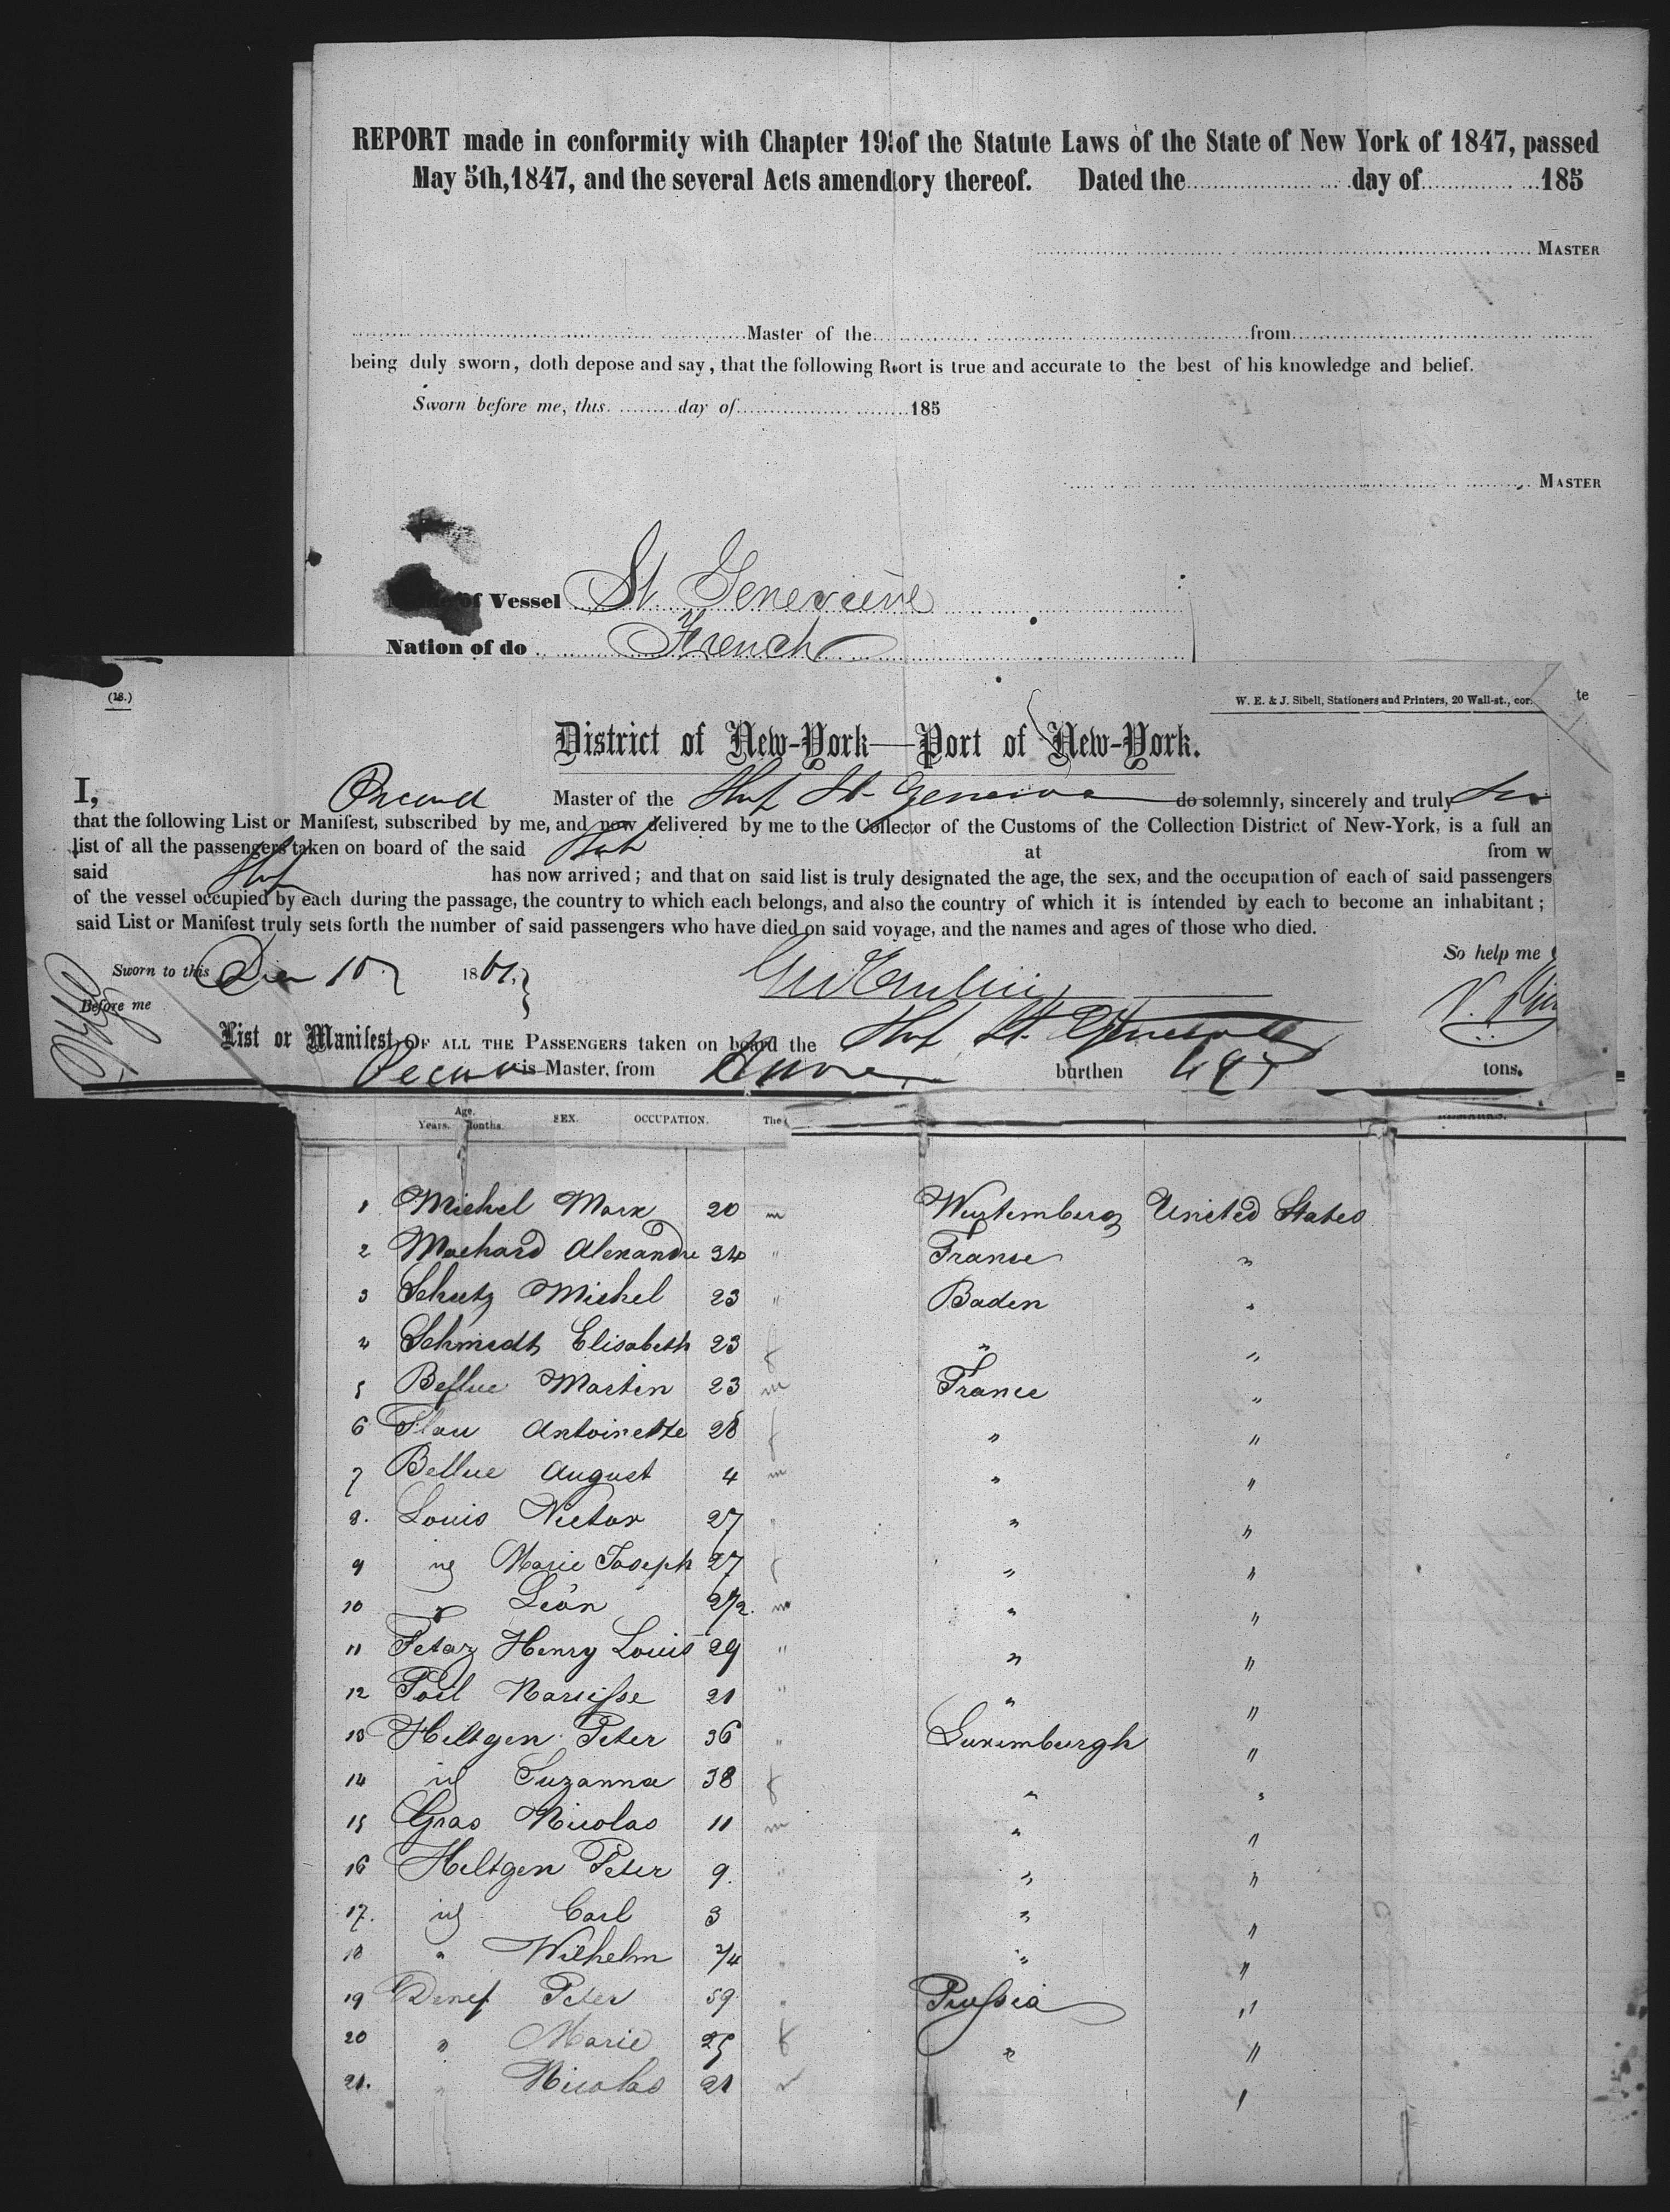 REPORT made in conformity with Chapter 19 of the Statute Laws of the State of New York of 1847, passed
May 5th, 1847, and the several Acts amendtory thereof. Dated the day of 185
MASTER
Master of the from
being duly sworn, doth depose and say, that the following Rort is true and accurate to the best of his knowledge and belief.
Sworn before me, this. day of 185
MASTER
of Vessel St Genevieve
Nation of do French
(18.)
W. E. & J. Sibell, Stationers and Printers, 20 Wall-st., cor.
te
District of New-York—Port of New-York.
I, Master of the do solemnly, sincerely and truly
that the following List or Manifest, subscribed by me, and now delivered by me to the Collector of the Customs of the Collection District of New-York, is a full an
list of all the passengers taken on board of the said at from w
said has now arrived; and that on said list is truly designated the age, the sex, and the occupation of each of said passengers
of the vessel occupied by each during the passage, the country to which each belongs, and also the country of which it is intended by each to become an inhabitant;
said List or Manifest truly sets forth the number of said passengers who have died on said voyage, and the names and ages of those who died.
So help me
Sworn to this 10 1861.
Before me
List or Manifest, OF ALL THE PASSENGERS taken on board the
is Master, from burthen tons.
Age.
Years. Months. SEX. OCCUPATION. The
1 Michel Marx 20 m Wurtemberg United States
2 Machard Alexandre 34 " France "
3 Schutz Michel 23 " Baden "
4 Schmidt Elisabeth 23 f " "
5 Bellue Martin 23 m France "
6 Antoinette 28 f " "
7 Bellue August 4 m " "
8. Louis Victor 27 " " "
9 id Marie Joseph 27 f " "
10 " Léon 2 1/2. m " "
11 Petaz Henry Louis 29 " " "
12 Narcisse 21 " " "
13 Hiltgen Peter 36 " Luxemburgh "
14 id Suzanna 38 f " "
15 Gras Nicolas 11 m " "
16 Hiltgen Peter 9. " " "
17. id Carl 3 " " "
18 " Wilhelm 3/4 " " "
19 Denef Peter 59 " Prussia "
20 " Marie 25 f " "
21. " Nicolas 21 "